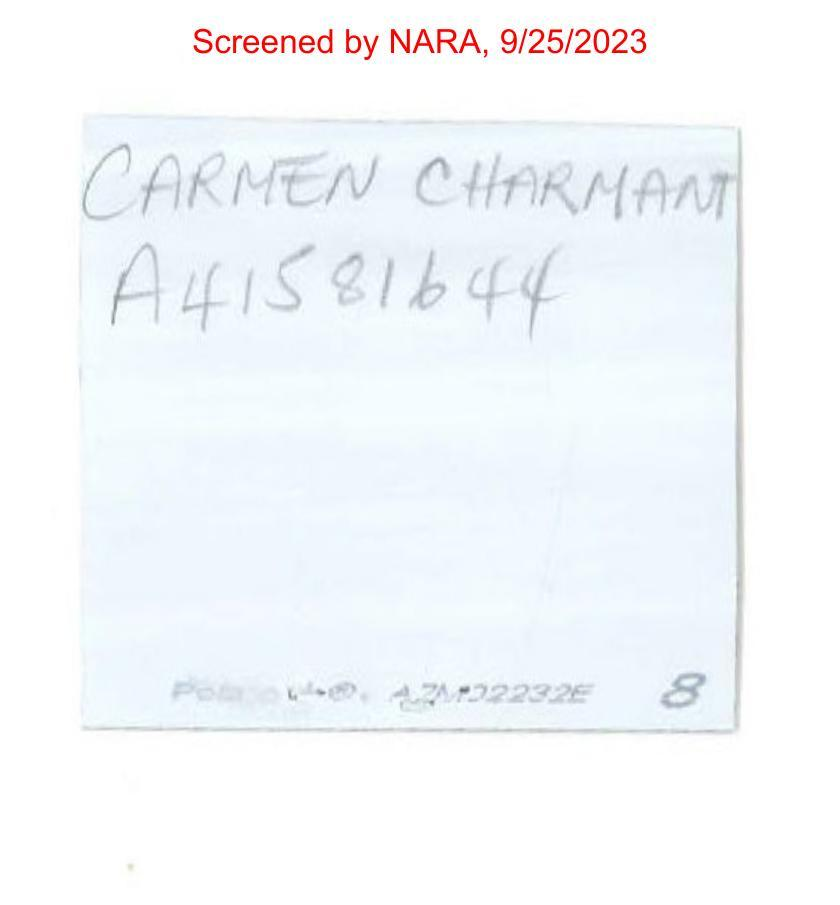 Screened by NARA, 9/25/2023
CARMEN CHARMANT
A41581644
8